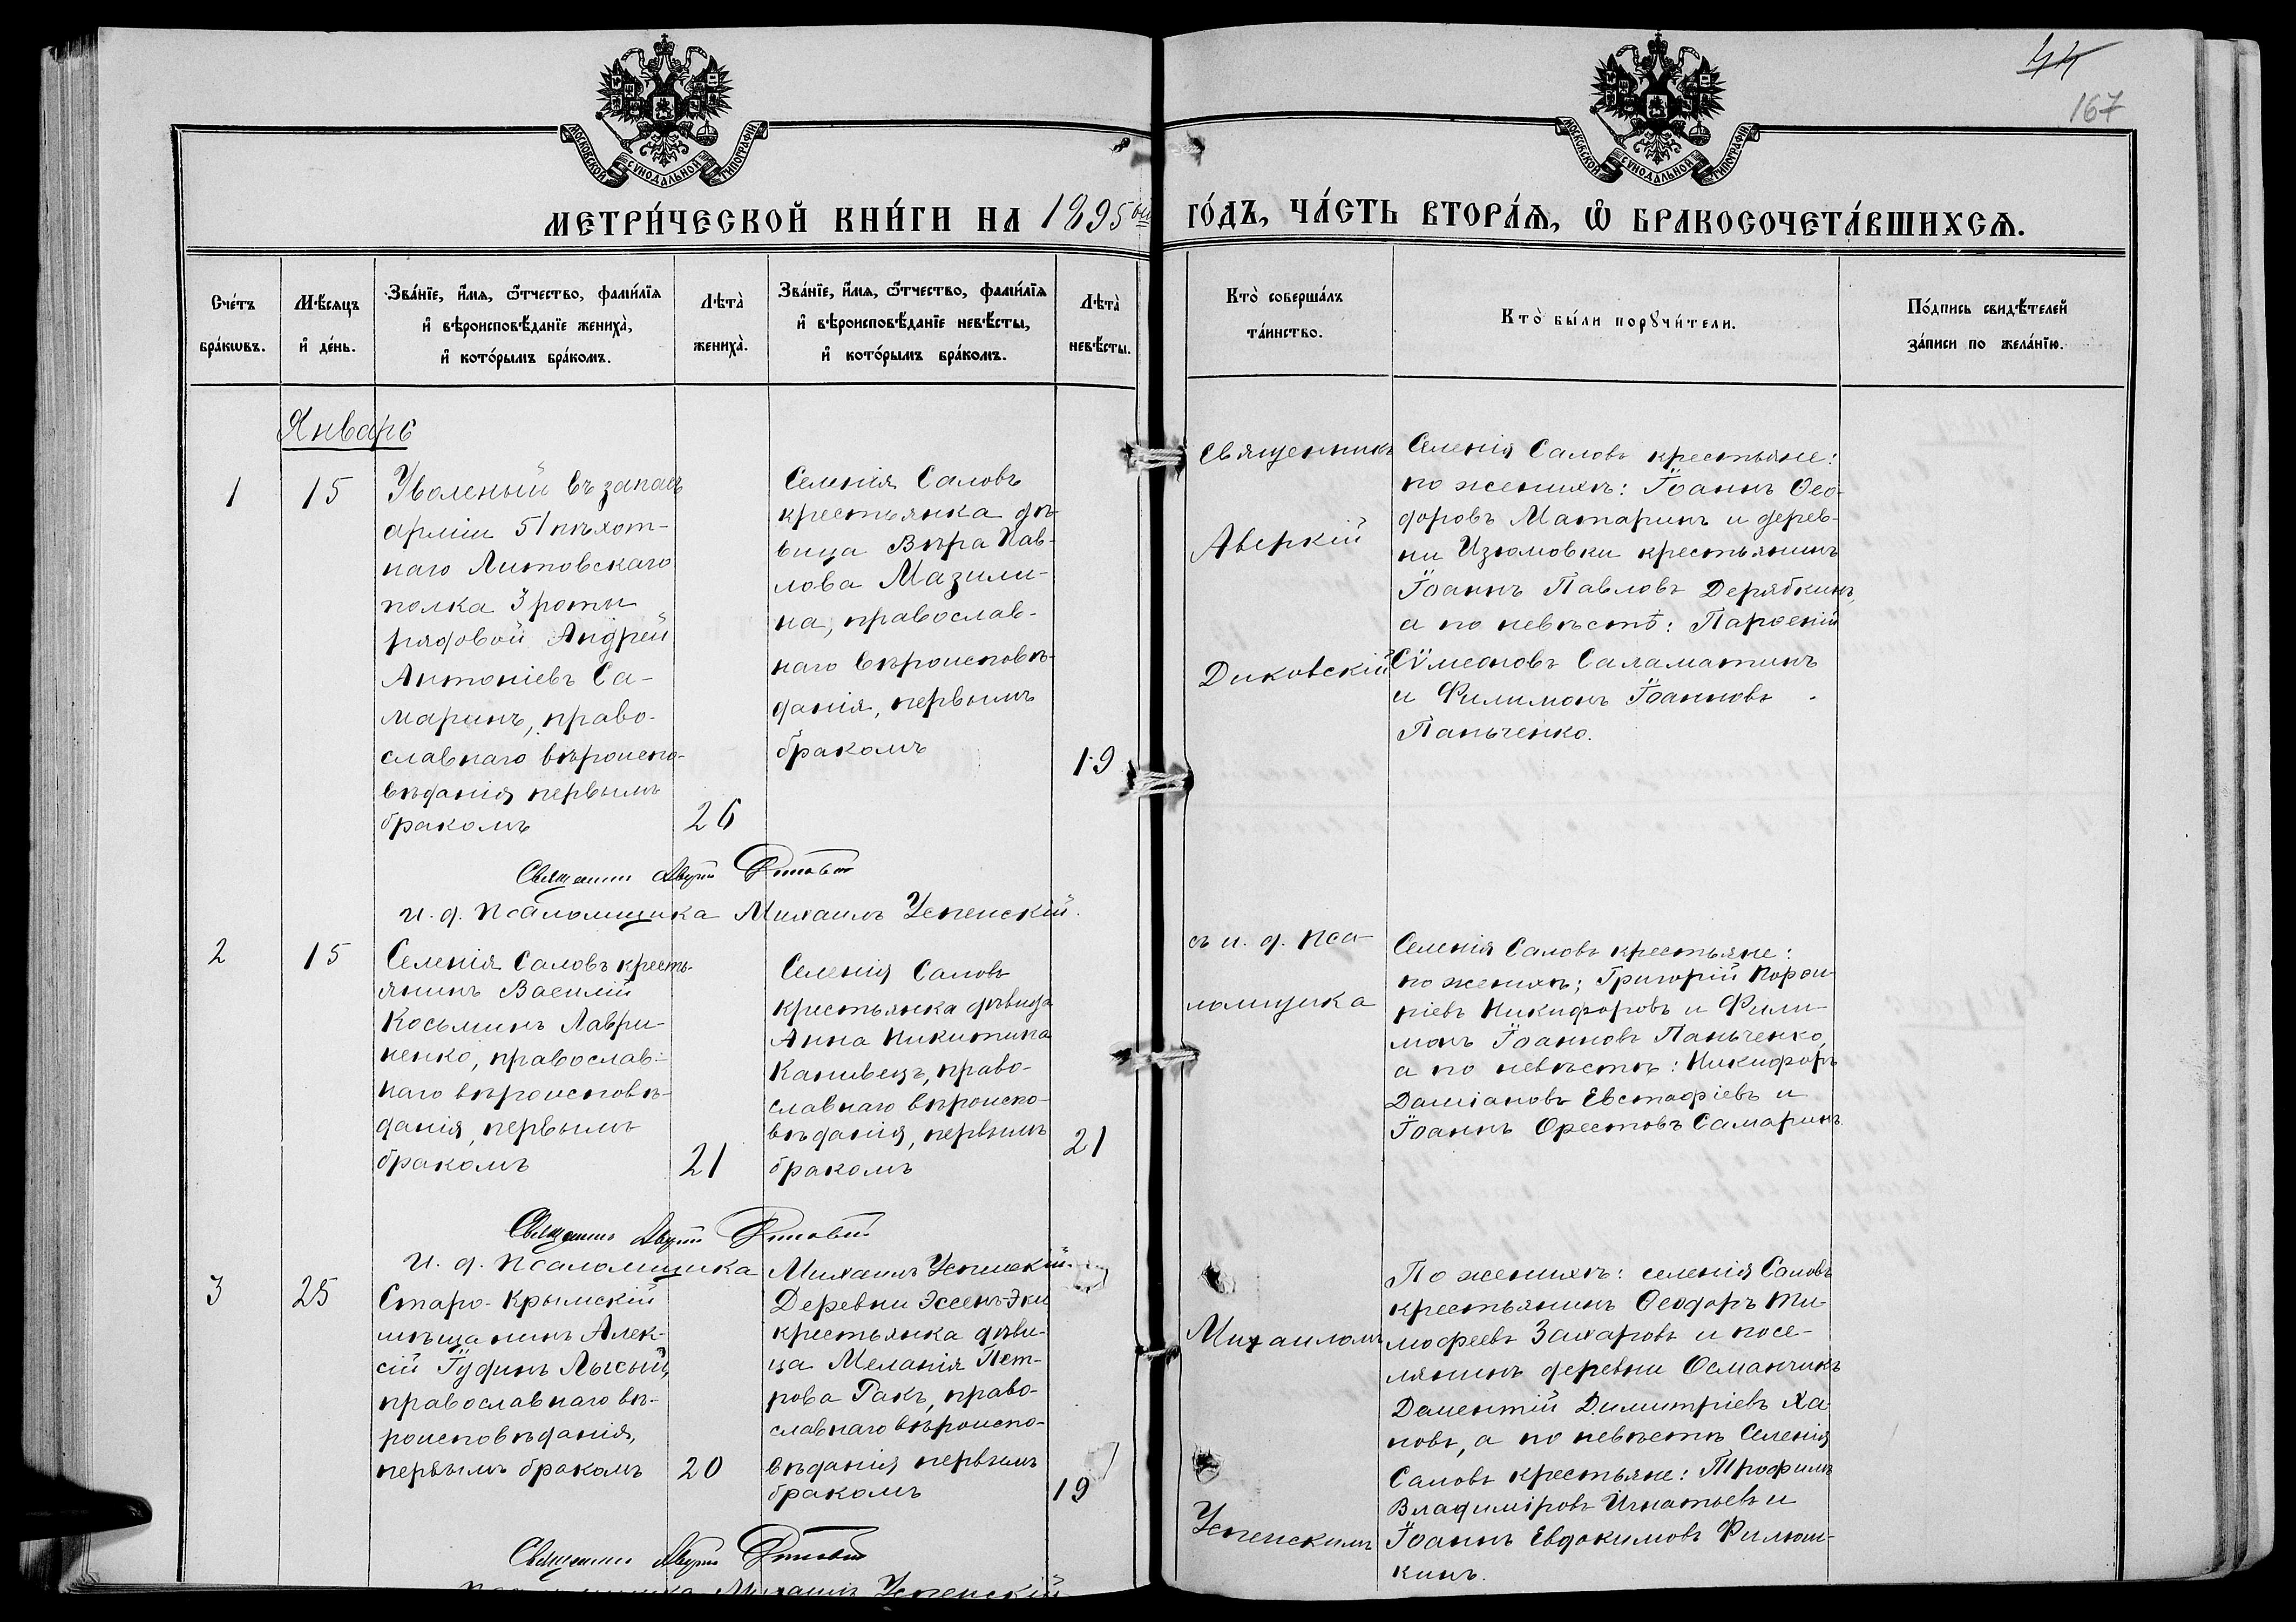 44
167
МОСКОВСКОЙ СѴНОДАЛЬНОЙ ТИПОГРАФІИ
МОСКОВСКОЙ СѴНОДАЛЬНОЙ ТИПОГРАФІИ
МЕТРИ́ЧЕСКОЙ КНИ́ГИ НА 1895ый ГО́ДЪ, ЧА́СТЬ ВТОРА́Ѧ, Ѡ҆ БРАКОСОЧЕТА́ВШИХСѦ.
Сче́тъ
бра́кѡвъ.
Мѣ́сѧцъ
и҆ де́нь.
Зва́нїе, и҆́мѧ, ѻ҆́тчество, фами́лїѧ
и҆ вѣроисповѣ́данїе жениха̀,
и҆ кото́рымъ бра́комъ.
Лѣта̀
жениха̀.
Зва́нїе, и҆́мѧ, ѻ҆́тчество, фами́лїѧ
и҆ вѣроисповѣ́данїе невѣ́сты,
и҆ кото́рымъ бра́комъ.
Лѣта̀
невѣ́сты.
Кто̀ соверша́лъ
та́инство.
Кто̀ бы́ли порꙋчи́тели.
По́дпись свидѣ́телей
за́писи по жела́нїю.
Январь
1
15
Уволеный въ запасъ
арміи 51 пѣхот-
наго Литовскаго
полка 3 роты
рядовой Андрей
Антоніевъ Са-
маринъ, право-
славнаго вѣроиспо-
вѣданія первымъ
бракомъ
26
Селенія Саловъ
крестьянка дѣ-
вица Вѣра Пав-
лова Мазили-
на, православ-
наго вѣроисповѣ-
данія, первымъ
бракомъ
19
Священникъ
Аверкій
Диковскій
Селенія Саловъ крестьяне:
по женихѣ: Іоаннъ Ѳео-
доровъ Матаринъ и дерев-
ни Изюмовки крестьянинъ
Іоаннъ Павловъ Дерябкинъ,
а по невѣстѣ: Парѳеній
Сѵмеоновъ Саламатинъ
и Филимонъ Іоанновъ
Паньченко.
Священникъ Аверкій
и. д. Псаломщика Михаилъ Успенскій.
2
15
Селенія Саловъ кресть-
янинъ Василій
Косьминъ Лаври-
ненко, православ-
наго вѣроисповѣ-
данія, первымъ
бракомъ
21
Селенія Саловъ
крестьянка дѣвица
Анна Никитина
Канивецъ, право-
славнаго вѣроиспо-
вѣданія, первымъ
бракомъ
21
съ и. д. Пса-
ломщика
Селенія Саловъ крестьяне:
по женихѣ; Григорій Порфи-
ріевъ Никифоровъ и Фили-
монъ Іоанновъ Паньченко,
а по невѣстѣ: Никифоръ
Даміановъ Евстафіевъ и
Іоаннъ Орестовъ Самаринъ.
Священникъ Аверкій
И. д. Псаломщика Михаилъ Успенскій.
3
25
Старо-Крымскій
мѣщанинъ Алек-
сій Іудинъ Лысый,
православнаго вѣ-
роисповѣданія,
первымъ бракомъ
20
Деревни Эссенъ-Эки
крестьянка дѣви-
ца Меланія Пет-
рова Гакъ, право-
славнаго вѣроиспо-
вѣданія первымъ
бракомъ
19
Михаиломъ
Успенскимъ
По женихѣ: селенія Саловъ
крестьянинъ Ѳеодоръ Ти-
мофеевъ Захаровъ и посе-
лянинъ деревни Османчикъ
Дементій Димитріевъ Ха-
новъ, а по невѣстѣ Селенія
Саловъ крестьяне: Трофимъ
Владиміровъ Игнатьевъ и
Іоаннъ Евдокимовъ Филюш-
кинъ.
Священникъ Аверкій
Псаломщика Михаилъ Успенскій